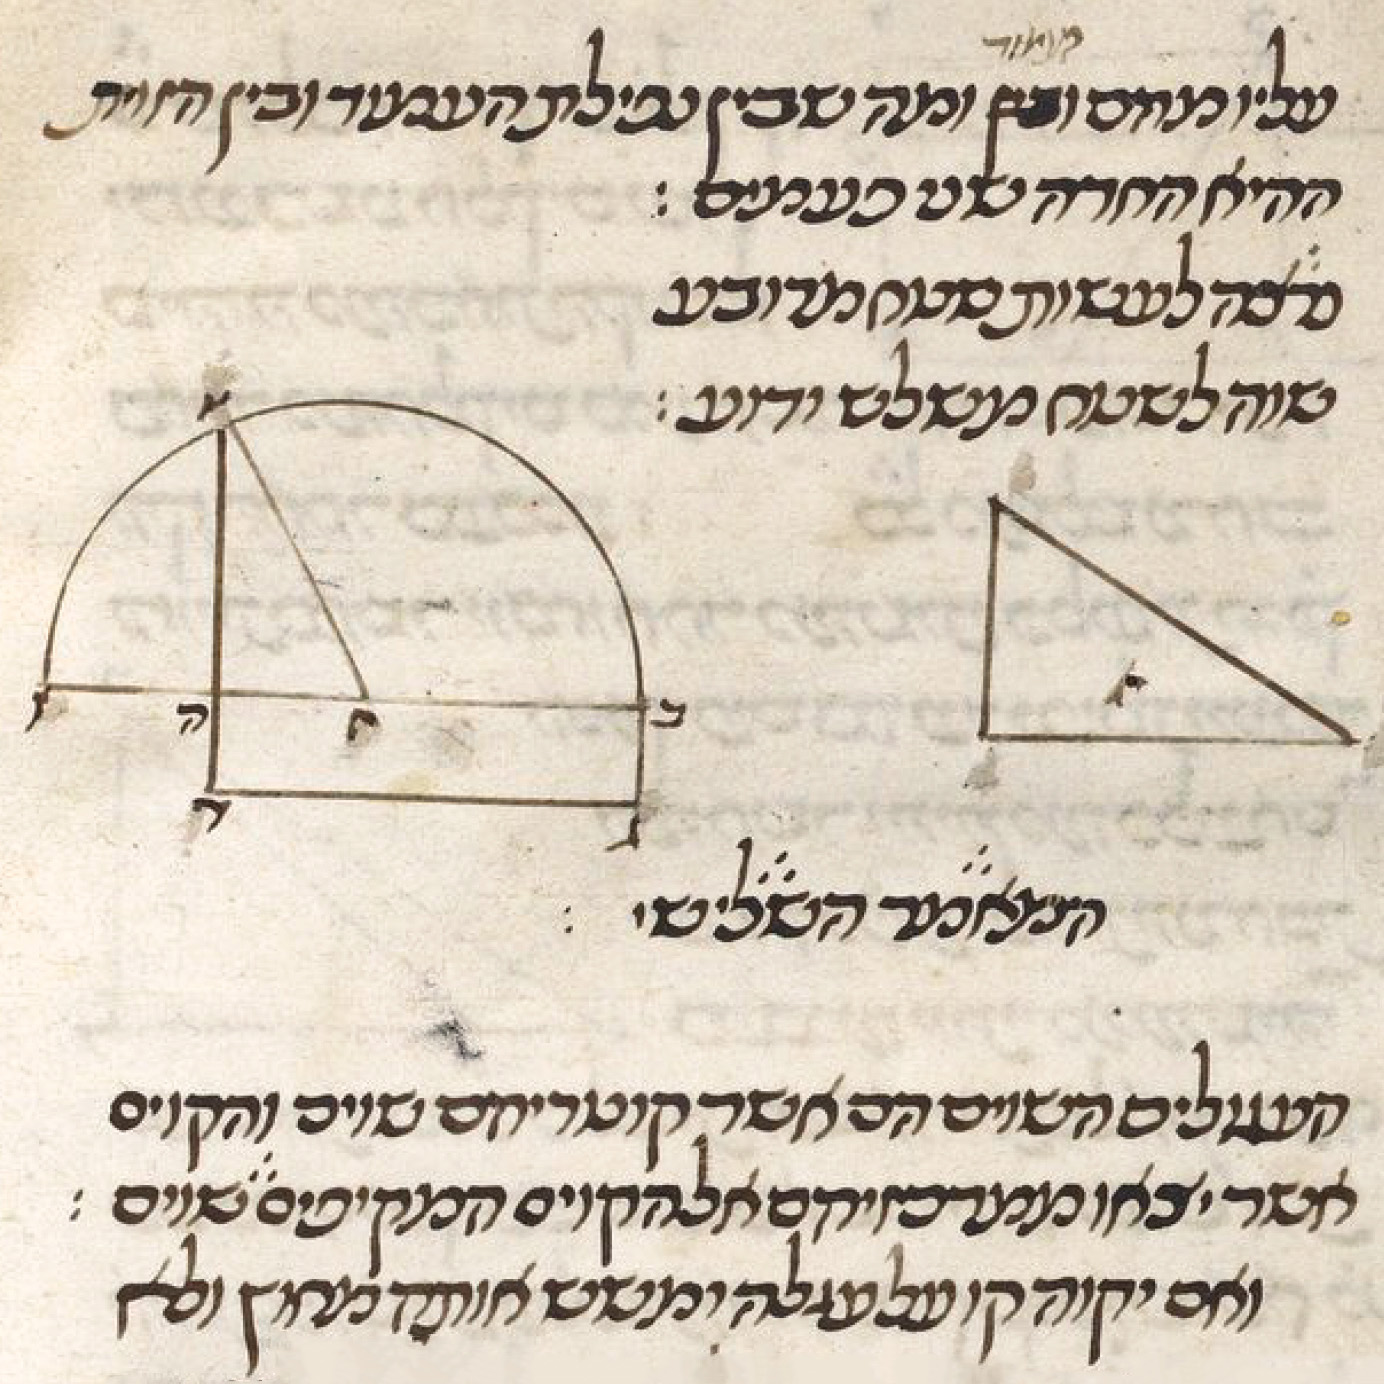 מעמוד
עליו מהם ומה שבין נפילת העמוד ובין הזוית
ההיא החדה שני פעמים :
נרצה לעשות שטח מרובע
שוה לשטח משולש ידוע :
א
ז
ה
ח
ב
ד
ג
א
המאמר השלישי :
העגולים השוים הם אשר קוטריהם שוים והקוים
אשר יצאו ממרכזיהם אל הקוים המקיפים שוים :
ואם יקוה קו על עגלה וימשש אותה מחוץ ולא